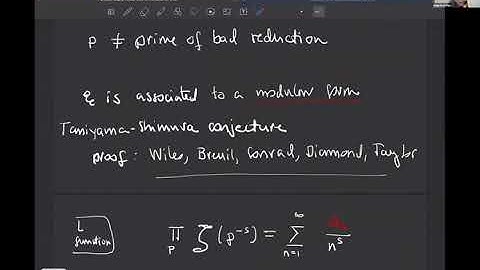 p ≠ prime of bad reduction
E is associated to a modular form
Taniyama-Shimura conjecture
proof: Wiles, Breuil, Conrad, Diamond, Taylor
L function
∏_p ζ(p^{-s}) = ∑_{n=1}^{∞} a_n / n^s